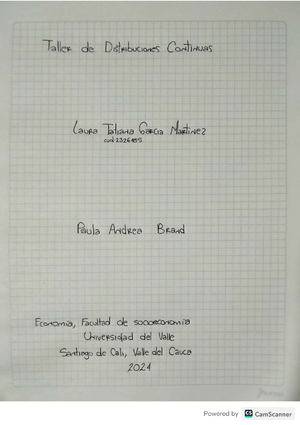 Taller de Distribuciones Continuas
Laura Tatiana Garcia Martinez
Paula Andrea Brand
Economia, Facultad de socioeconomia
Universidad del Valle
Santiago de Cali, Valle del Cauca
2024
Powered by CS CamScanner